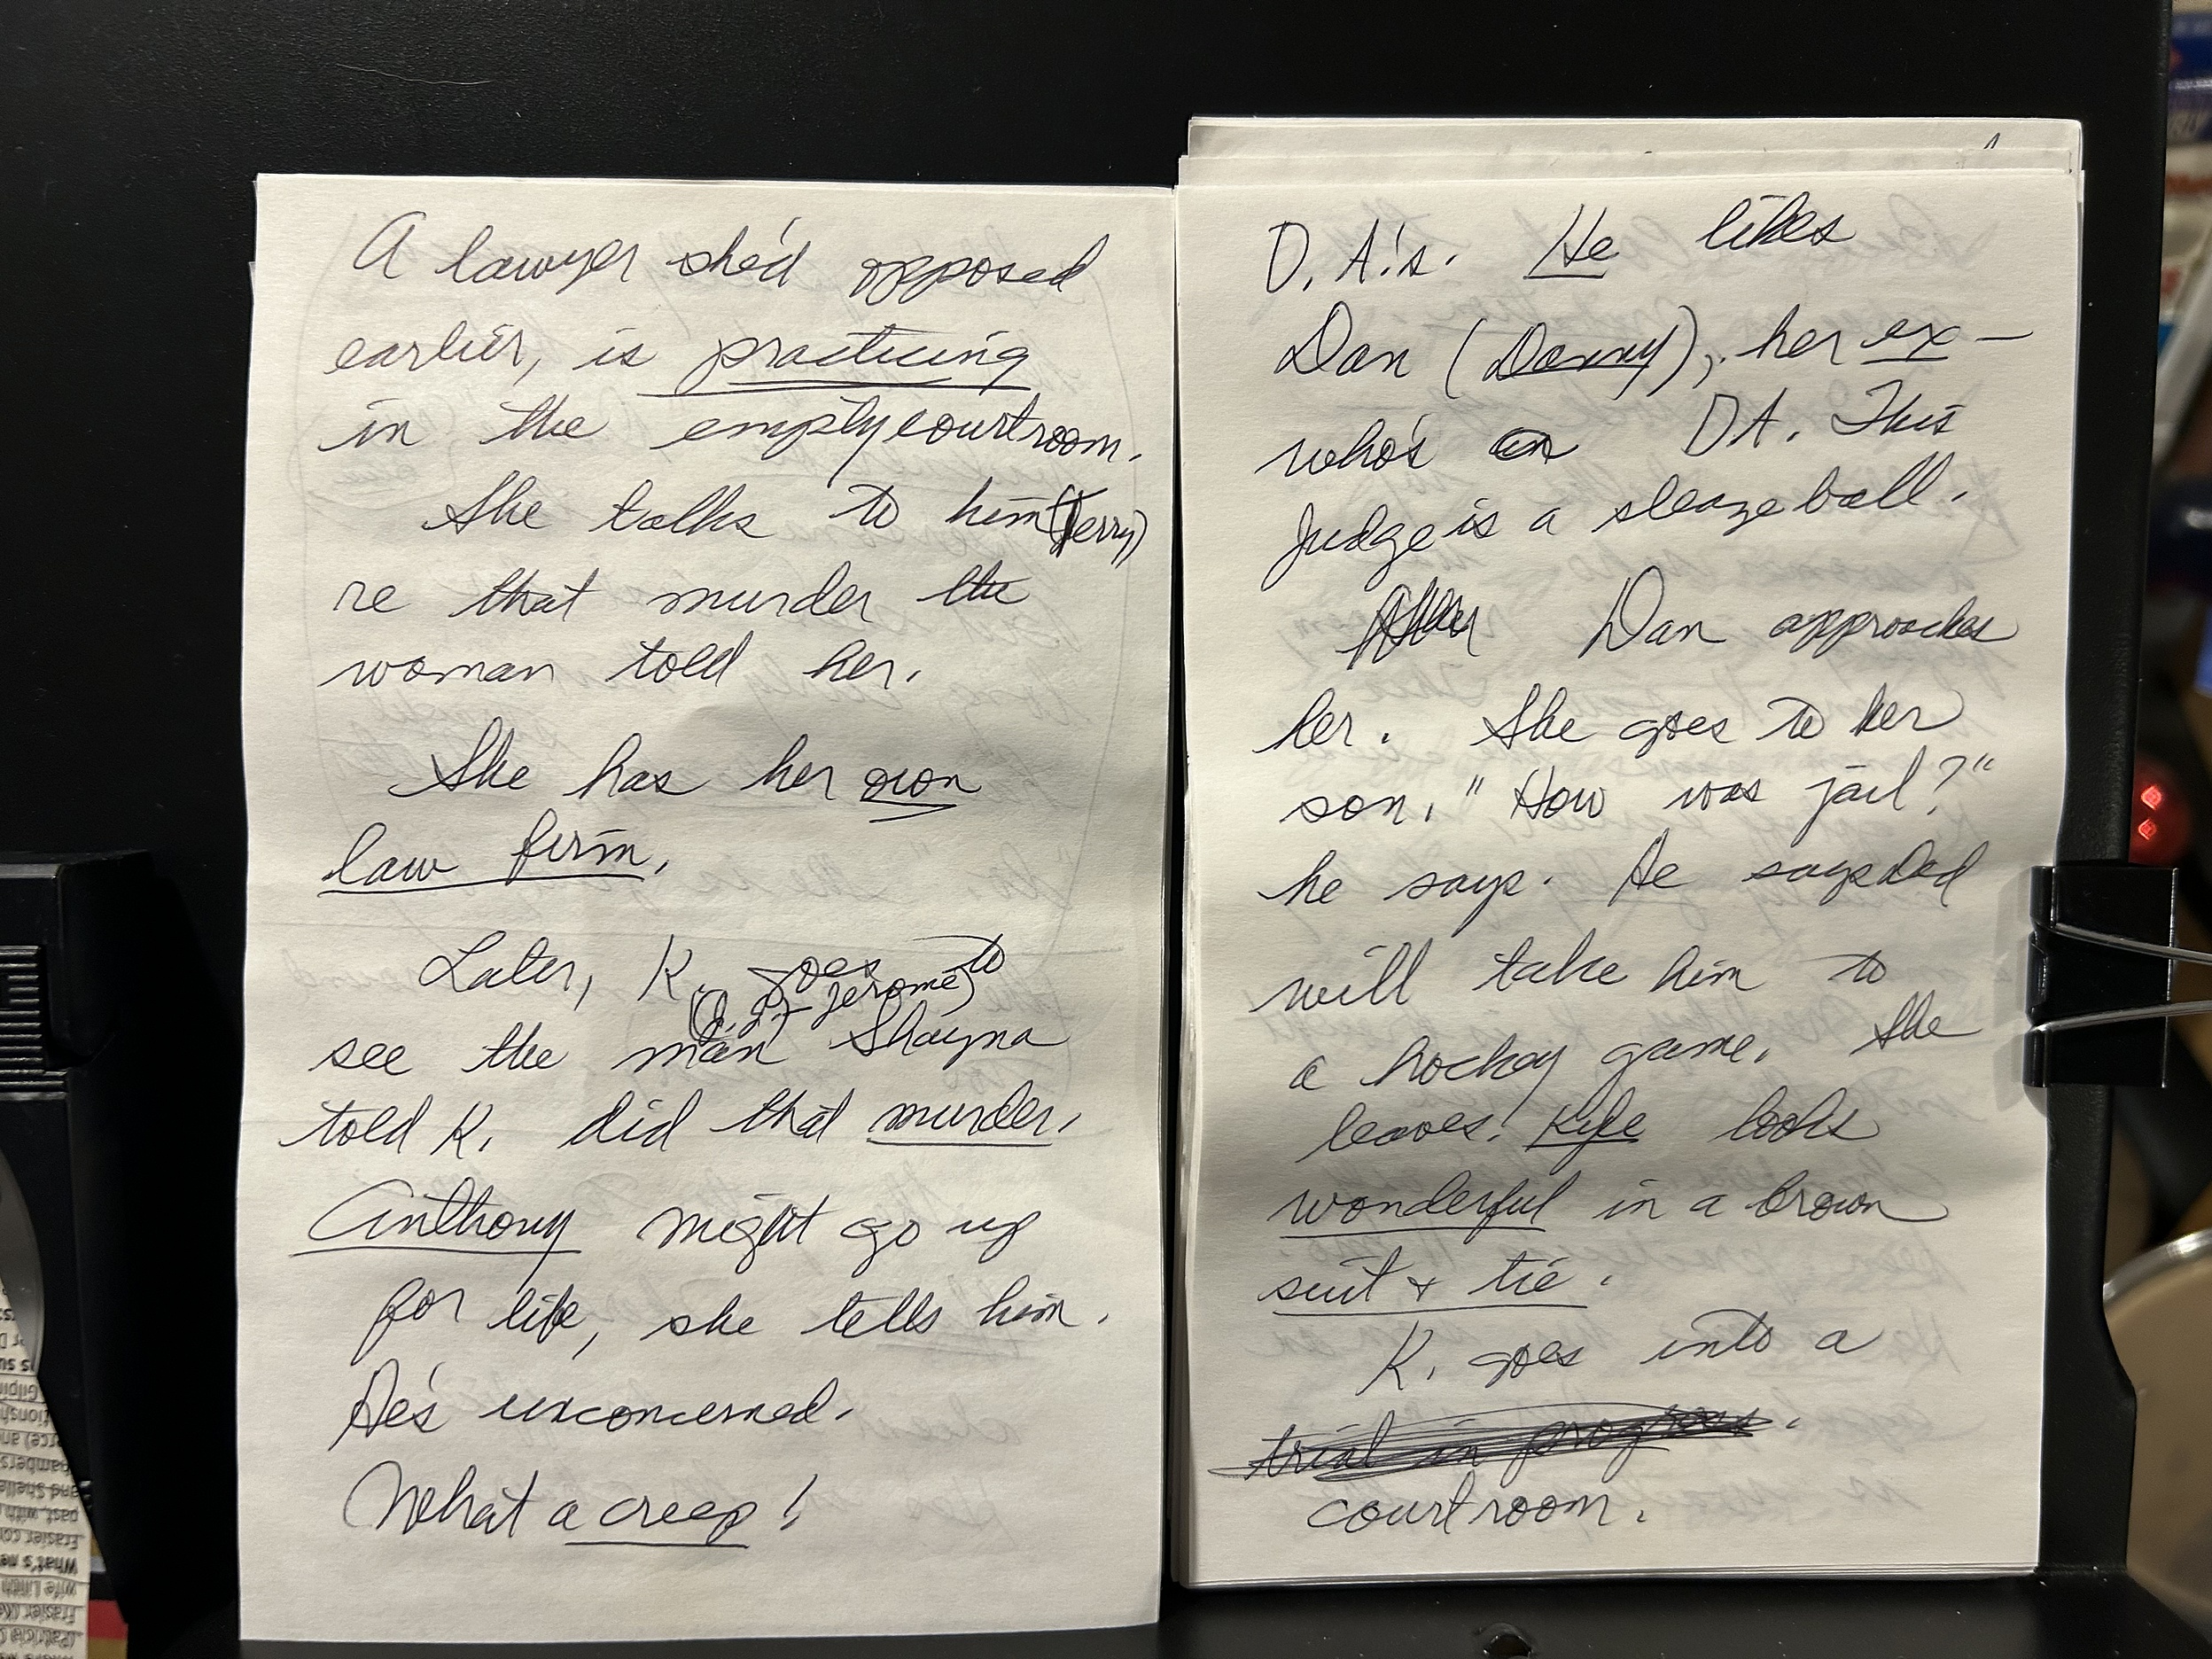 A lawyer she'd opposed
earlier, is practicing
in the empty courtroom.
She talks to him (Jerry)
re that murder the
woman told her.
She has her own
law firm.
Later, K. goes to
see the man Shayna
told K. did that murder.
Anthony might go up
for life, she tells him.
He's unconcerned.
What a creep!
D.A.'s. He likes
Dan (Danny), her ex-
who's an DA. This
Judge is a sleazeball.
Dan approaches
her. She goes to her
son. "How was jail?"
he says. He says Dad
will take him to
a hockey game. She
leaves. Kyle looks
wonderful in a brown
suit + tie.
K. goes into a
trial in progress.
courtroom.